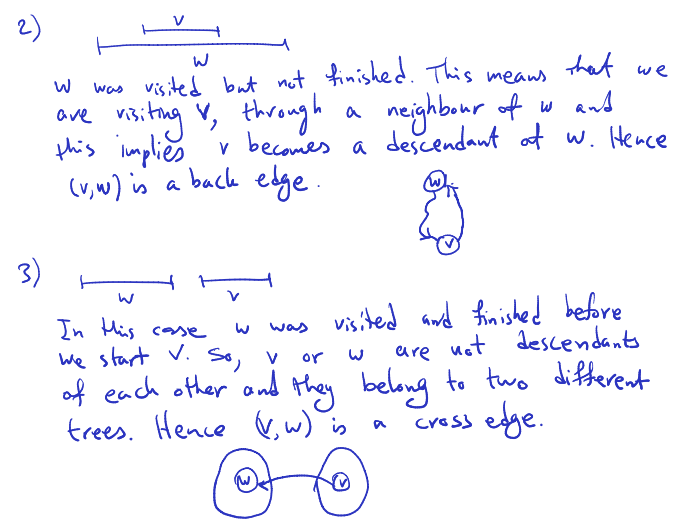 2)
v
w
w was visited but not finished. This means that we
are visiting v, through a neighbour of w and
this implies v becomes a descendant of w. Hence
(v,w) is a back edge.
w
v
3)
w v
In this case w was visited and finished before
we start v. So, v or w are not descendants
of each other and they belong to two different
trees. Hence (v,w) is a cross edge.
w v